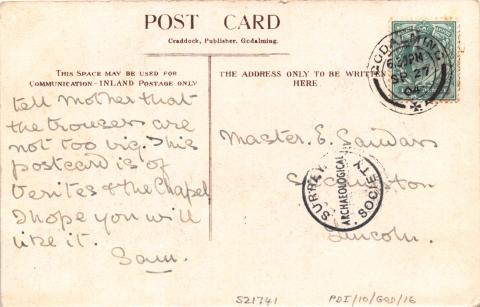 POST CARD
Craddock, Publisher. Godalming.
THIS SPACE MAY BE USED FOR
COMMUNICATION - INLAND POSTAGE ONLY
tell Mother that
the trousers are
not too big. This
postcard is of
Verites & the Chapel
I hope you will
like it.
Sam.
THE ADDRESS ONLY TO BE WRITTEN
HERE
GODALMING
6.30PM
SP 27
04
Master. E.
Lincoln.
SURREY
ARCHAEOLOGICAL
SOCIETY
521741
PDI/10/GOD/16